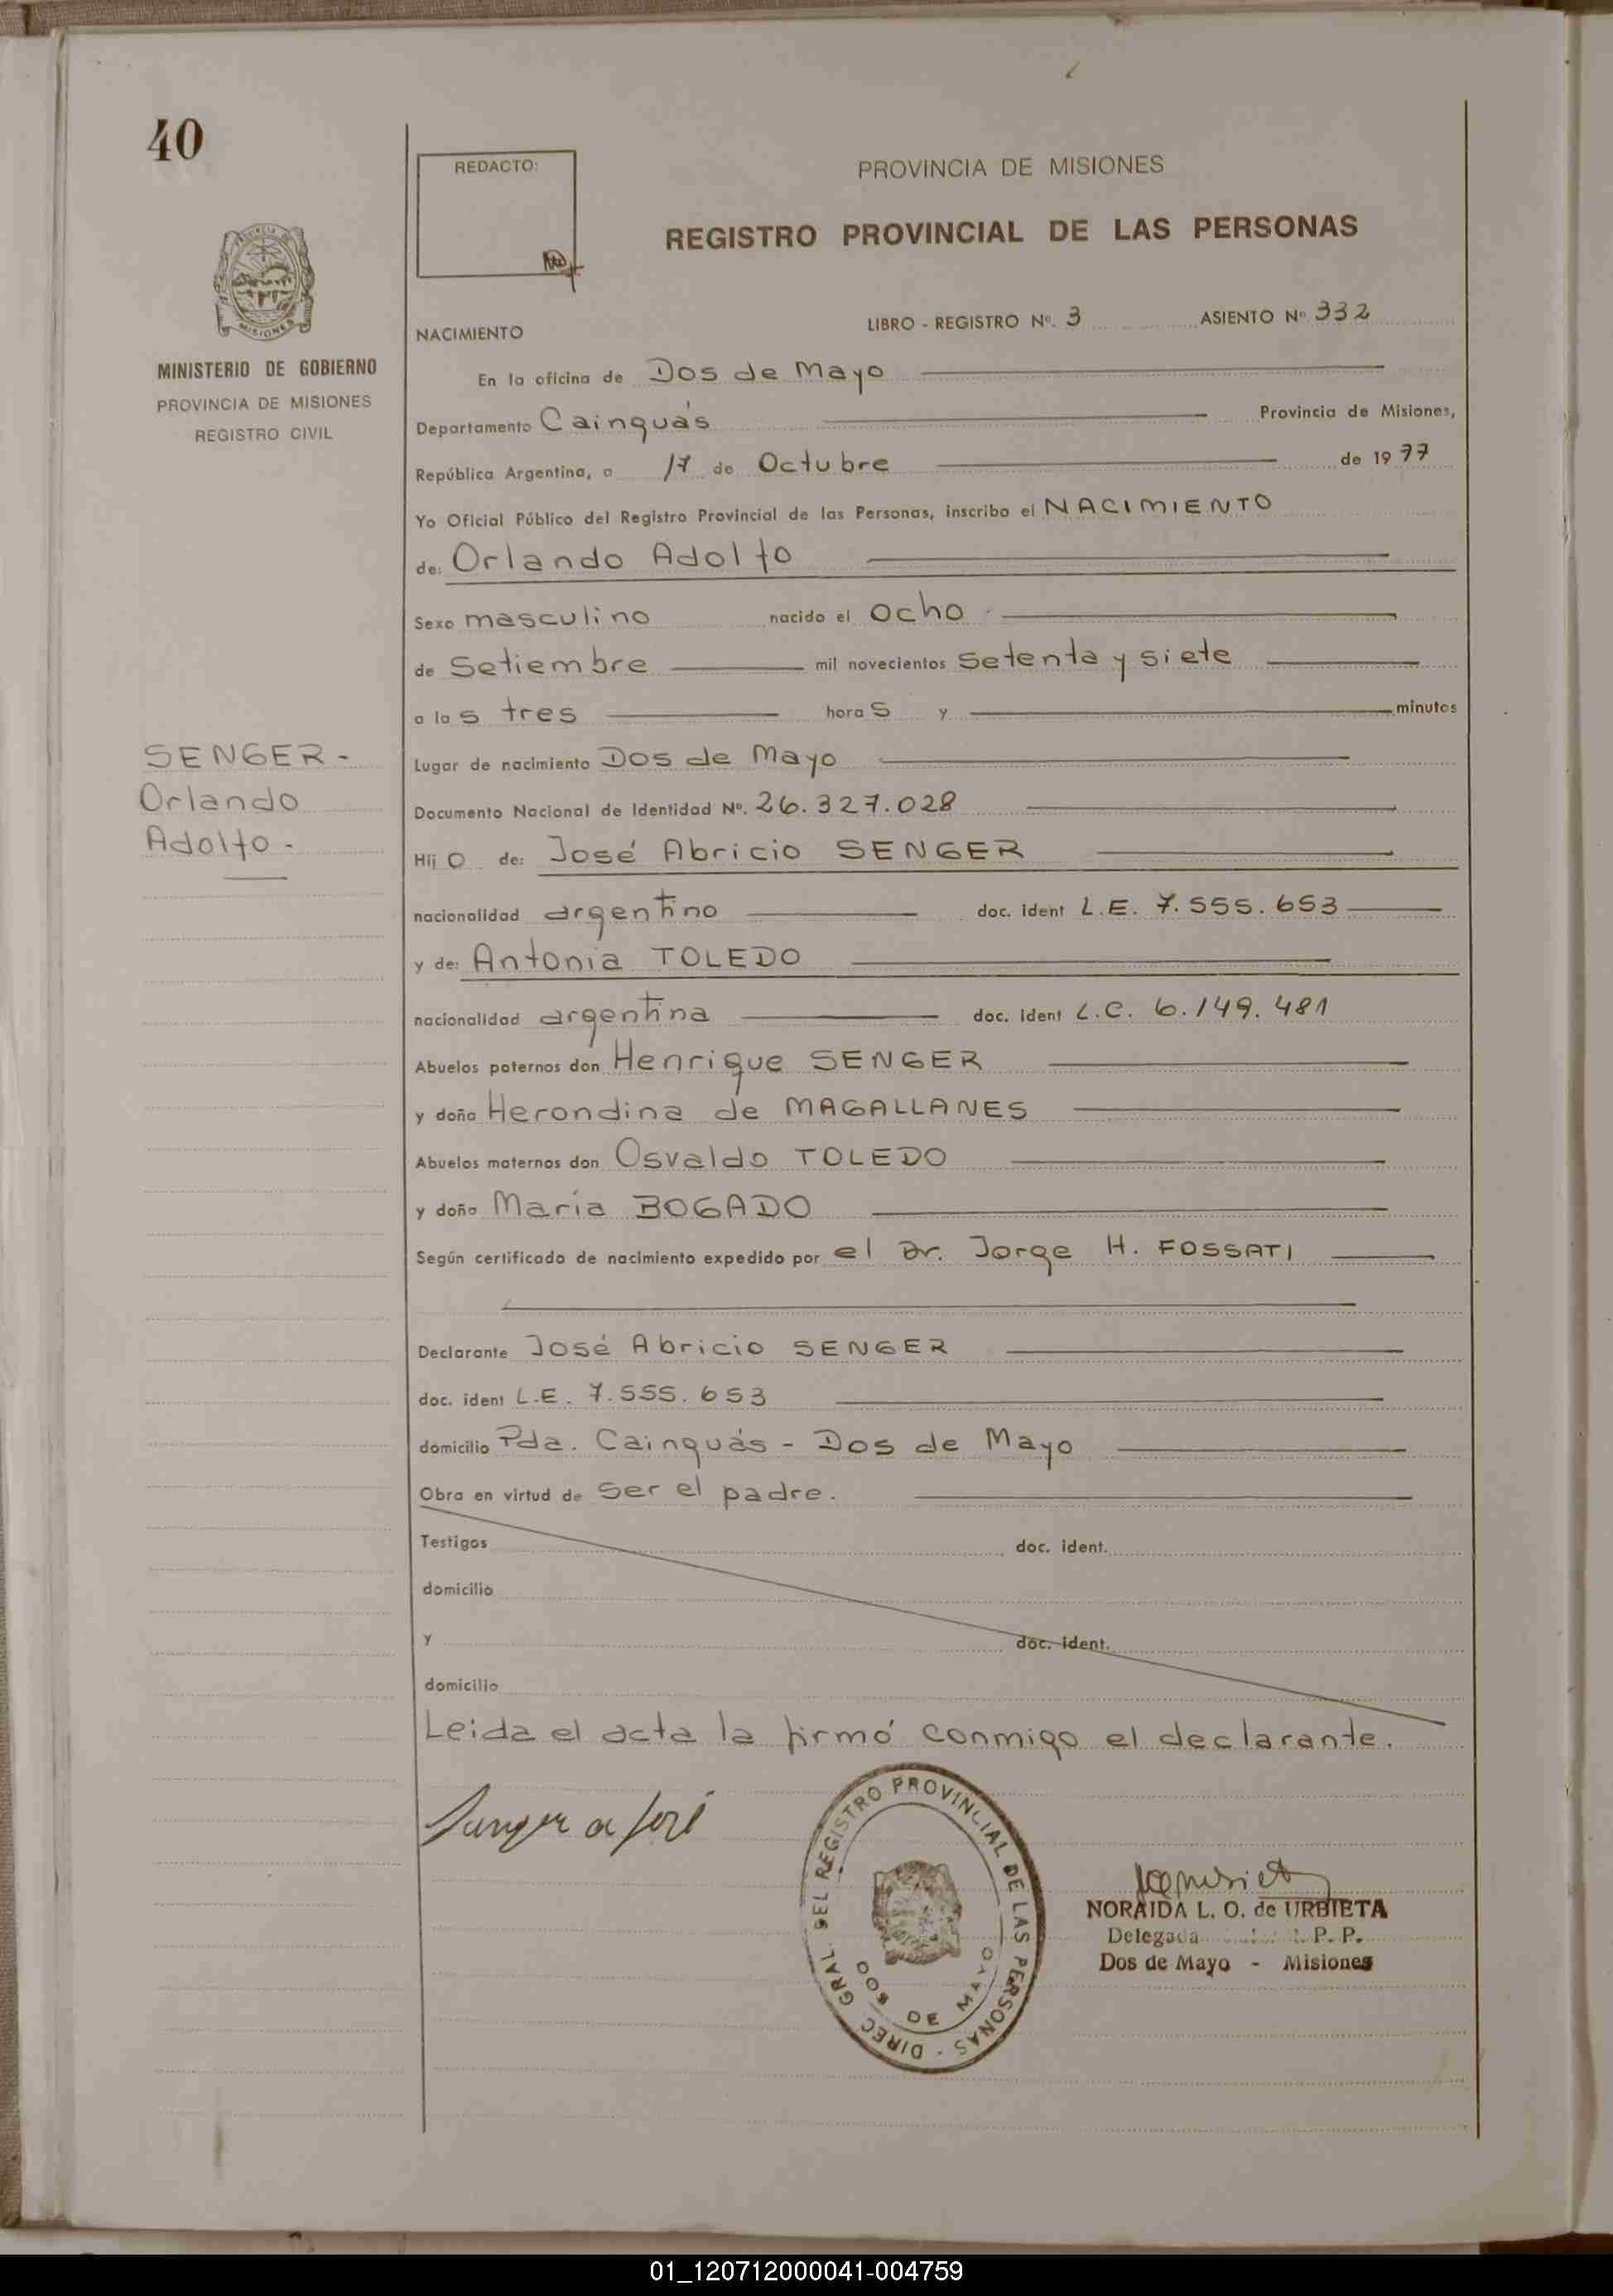 40
REDACTO:
PROVINCIA DE MISIONES
REGISTRO PROVINCIAL DE LAS PERSONAS
MISIONES
MINISTERIO DE GOBIERNO
PROVINCIA DE MISIONES
REGISTRO CIVIL
NACIMIENTO LIBRO - REGISTRO Nº. 3 ASIENTO Nº 332
En la oficina de Dos de Mayo
Departamento Cainguás Provincia de Misiones,
República Argentina, a 17 de Octubre de 1977
Yo Oficial Público del Registro Provincial de las Personas, inscribo el NACIMIENTO
de: Orlando Adolfo
Sexo masculino nacido el ocho
de Setiembre mil novecientos setenta y siete
a las tres horas y minutos
SENGER -
Orlando
Adolfo -
Lugar de nacimiento Dos de Mayo
Documento Nacional de Identidad Nº. 26.327.028
Hijo de: José Abricio SENGER
nacionalidad argentino doc. ident L.E. 7.555.653
y de: Antonia TOLEDO
nacionalidad argentina doc. ident L.C. 6.149.481
Abuelos paternos don Henrique SENGER
y doña Herondina de MAGALLANES
Abuelos maternos don Osvaldo TOLEDO
y doña María BOGADO
Según certificado de nacimiento expedido por el Dr. Jorge H. FOSSATI
Declarante José Abricio SENGER
doc. ident L.E. 7.555.653
domicilio Pda. Cainguás - Dos de Mayo
Obra en virtud de ser el padre.
Testigos doc. ident.
domicilio
y doc. ident.
domicilio
Leida el acta la firmó conmigo el declarante.
Senger a José
DIREC. GRAL. DEL REGISTRO PROVINCIAL DE LAS PERSONAS -
DOS DE MAYO
NORAIDA L. O. de URBIETA
Delegada R. P. P.
Dos de Mayo - Misiones
01_120712000041-004759